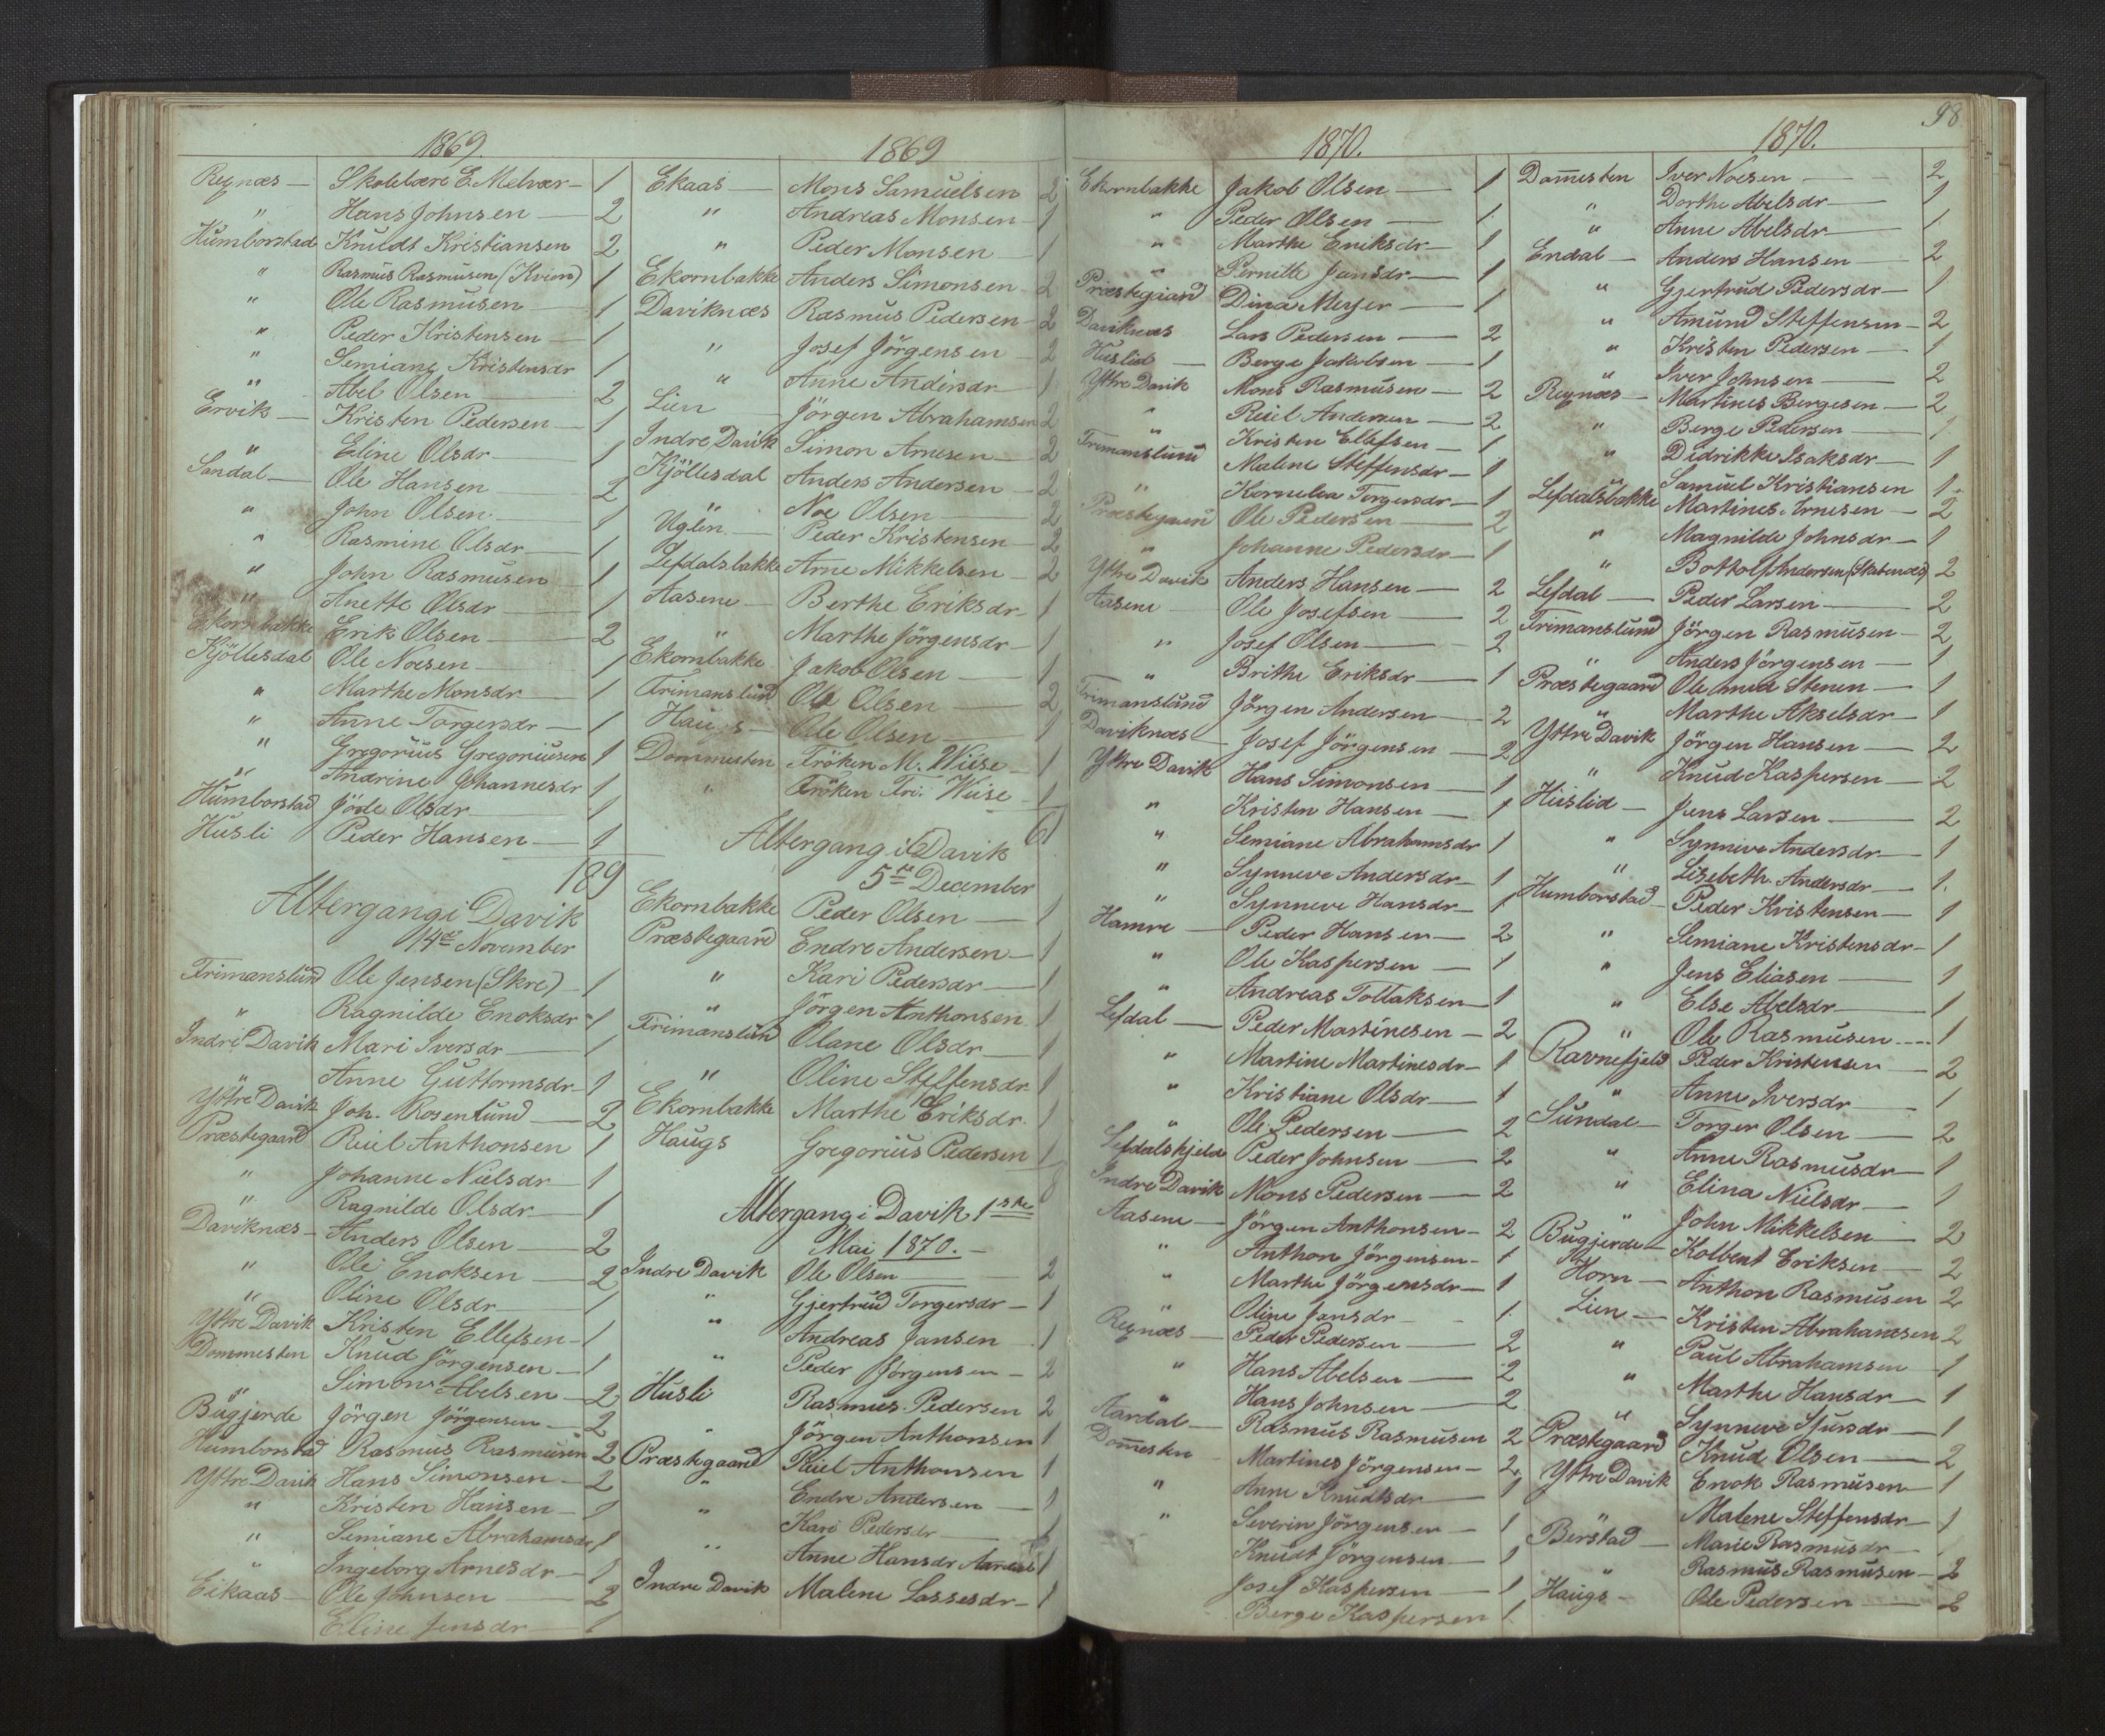 1869.
Rugnæs — Skolelære E. Melvær — 1
" Hans Johnsen — 2
Humborstad Knudt Kristiansen 2
" Rasmus Rasmusen (Kvien) 1
" Ole Rasmusen — 1
" Peder Kristensen — 1
" Semiane Kristensdr 1
" Abel Olsen — 2
Ervik — Kristen Pedersen — 1
" Eline Olsdr — 1
Sandal — Ole Hansen — 2
" John Olsen — 1
" Rasmine Olsdr — 1
" John Rasmusen — 1
" Anette Olsdr — 1
Ekornbakke Erik Olsen — 2
Kjöllesdal Ole Noesen — 1
" Marthe Monsdr — 1
" Anne Torgersdr — 1
" Gregorius Gregoriusen 1
" Andrine Johannesdr 1
Humborstad Jöde Olsdr — 1
Husli Peder Hansen — 1
189
Altergang i Davik
14de November
Frimanslund Ole Jensen (Skre) — 1
" Ragnilde Enoksdr — 1
Indre Davik Mari Iversdr — 1
" Anne Guttormsdr — 1
Yttre Davik Joh. Rosenlund — 2
Præstegaard Reiel Anthonsen 1
" Johanne Nielsdr — 1
" Ragnilde Olsdr — 1
Daviknæs — Anders Olsen — 2
" Ole Enoksen — 2
" Oline Olsdr — 1
Yttre Davik Kristen Ellefsen — 1
Dommesten Knud Jörgensen — 1
" Simon Abelsen — 2
Bugjerde Jörgen Jörgensen — 2
Humborstad Rasmus Rasmusen 2
Yttre Davik Hans Simonsen — 2
" Kristen Hansen — 1
" Semiane Abrahamsdr 1
" Ingeborg Arnesdr — 1
Eikaas — Ole Johnsen — 2
Eline Jensdr — 1
1869
Ekaas — Mons Samuelsen 2
" Andreas Monsen — 1
" Peder Monsen — 1
Ekornbakke Anders Simonsen — 2
Daviknæs Rasmus Pedersen — 2
" Josef Jörgensen — 2
" Anne Andersdr — 1
Lien — Jörgen Abrahamsen 2
Indre Davik Simon Arnesen — 2
Kjöllesdal Anders Andersen — 2
" Noe Olsen — 2
Uglen — Peder Kristensen — 2
Lefdalsbakke Arne Mikkelsen — 2
Aasene — Berthe Eriksdr — 1
" Marthe Jörgensdr — 1
Ekornbakke Jakob Olsen — 1
Frimanslund Ole Olsen — 2
Haugs — Ole Olsen — 1
Dommesten Fröken M. Wiese — 1
" Fröken Fri. Wiese — 1
61
Altergang i Davik
5te December
Ekornbakke Peder Olsen — 1
Præstegaard Endre Andersen — 1
" Kari Pedersdr — 1
" Jörgen Anthonsen 1
Frimanslund Olane Olsdr — 1
" Oline Steffensdr — 1
Ekornbakke Marthe Eriksdr 1
Haugs Gregorius Pedersen 1
8
Altergang i Davik 1ste
Mai 1870. —
Indre Davik Ole Olsen — 2
" Gjertrud Torgersdr — 1
" Andreas Jansen 1
" Peder Jörgensen — 2
Husli Rasmus Pedersen 2
" Jörgen Anthonsen 1
Præstegaard Reiel Anthonsen 1
" Endre Andersen — 1
" Kari Pedersdr — 1
" Anne Hansdr Aardal 1
Indre Davik Malene Lassesdr — 1
1870.
Ekornbakke Jakob Olsen — 1
" Peder Olsen — 1
" Marthe Eriksdr — 1
" Pernille Jansdr — 1
Præstegaard Dina Meyer — 1
Daviknæs Lars Pedersen — 2
Huslid — Berge Jakobsen — 1
Yttre Davik Mons Rasmusen — 2
" Reiel Andersen — 2
" Kristen Ellefsen — 1
Frimanslund Malene Steffensdr — 1
" Kornelia Torgersdr — 1
Præstegaard Ole Pedersen — 2
" Johanne Pedersdr — 1
Yttre Davik Anders Hansen — 2
Aasene — Ole Josefsen — 2
" Josef Olsen — 2
" Brithe Eriksdr — 1
Frimanslund Jörgen Andersen — 2
Daviknæs — Josef Jörgensen — 2
Yttre Davik Hans Simonsen — 1
" Kristen Hansen — 1
" Semiane Abrahamsdr 1
" Synneve Andersdr — 1
" Synneve Hansdr — 1
Hamre — Peder Hansen — 2
" Ole Kaspersen — 1
" Andreas Tollaksen — 1
Lefdal — Peder Martinesen — 2
" Martine Martinesdr — 1
" Kristiane Olsdr — 1
" Ole Pedersen — 2
Lefdalskjeld Peder Johnsen — 2
Indre Davik Mons Pedersen — 2
Aasene — Jörgen Anthonsen — 2
" Anthon Jörgensen — 1
" Marthe Jörgensdr — 1
" Oline Jansdr — 1
Rugnæs — Peder Pedersen — 2
" Hans Abelsen — 2
" Hans Johnsen — 2
Aardal — Rasmus Rasmusen 2
Dommesten Martines Jörgensen — 2
" Anne Knudtsdr — 1
" Severin Jörgensen — 1
Knudt Jörgensen — 1
Josef Kaspersen — 1
Berge Kaspersen 1
98
1870.
Dommesten Iver Noesen — 2
" Dorthe Abelsdr — 1
" Anne Abelsdr — 1
Endal — Anders Hansen — 2
" Gjertrud Pedersdr — 1
" Amund Steffensen — 2
" Kristen Pedersen — 1
" Iver Johnsen — 2
Rugnæs — Martines Bergesen — 2
" Berge Pedersen — 1
" Didrikke Isaksdr — 1
" Samuel Kristiansen 1
Lefdalsbakke Martines Arnesen — 2
" Magnilde Johnsdr — 1
" Bottolf Andersen (Stabenæs) 2
Lefdal — Peder Larsen — 2
Frimanslund Jörgen Rasmusen — 2
" Anders Jörgensen — 1
Præstegaard Ole Stenen — 1
" Marthe Akselsdr — 1
Yttre Davik Jörgen Hansen — 2
" Knud Kaspersen — 2
Huslid — Jens Larsen — 2
" Synneve Andersdr — 1
" Lisebeth Andersdr — 1
Humborstad — Peder Kristensen — 1
" Semiane Kristensdr — 1
" Jens Eliasen — 1
" Else Abelsdr — 1
" Ole Rasmusen — 1
Ravnefjeld Peder Kristensen — 2
" Anne Iversdr — 1
Sundal — Torger Olsen — 2
" Anne Rasmusdr — 1
" Elina Nielsdr — 1
" John Mikkelsen — 2
Bugjerde — Kolbent Eriksen — 2
Horn — Anthon Rasmusen 2
Lien — Kristen Abrahamsen 2
" Paul Abrahamsen — 1
" Marthe Hansdr — 1
" Synneve Sjursdr — 1
Præstegaard Knud Olsen — 2
Yttre Davik Enok Rasmusen — 1
" Malene Steffensdr — 1
Berstad — Marie Rasmusdr —
" Rasmus Rasmusen — 2
Haugs — Ole Pedersen — 2